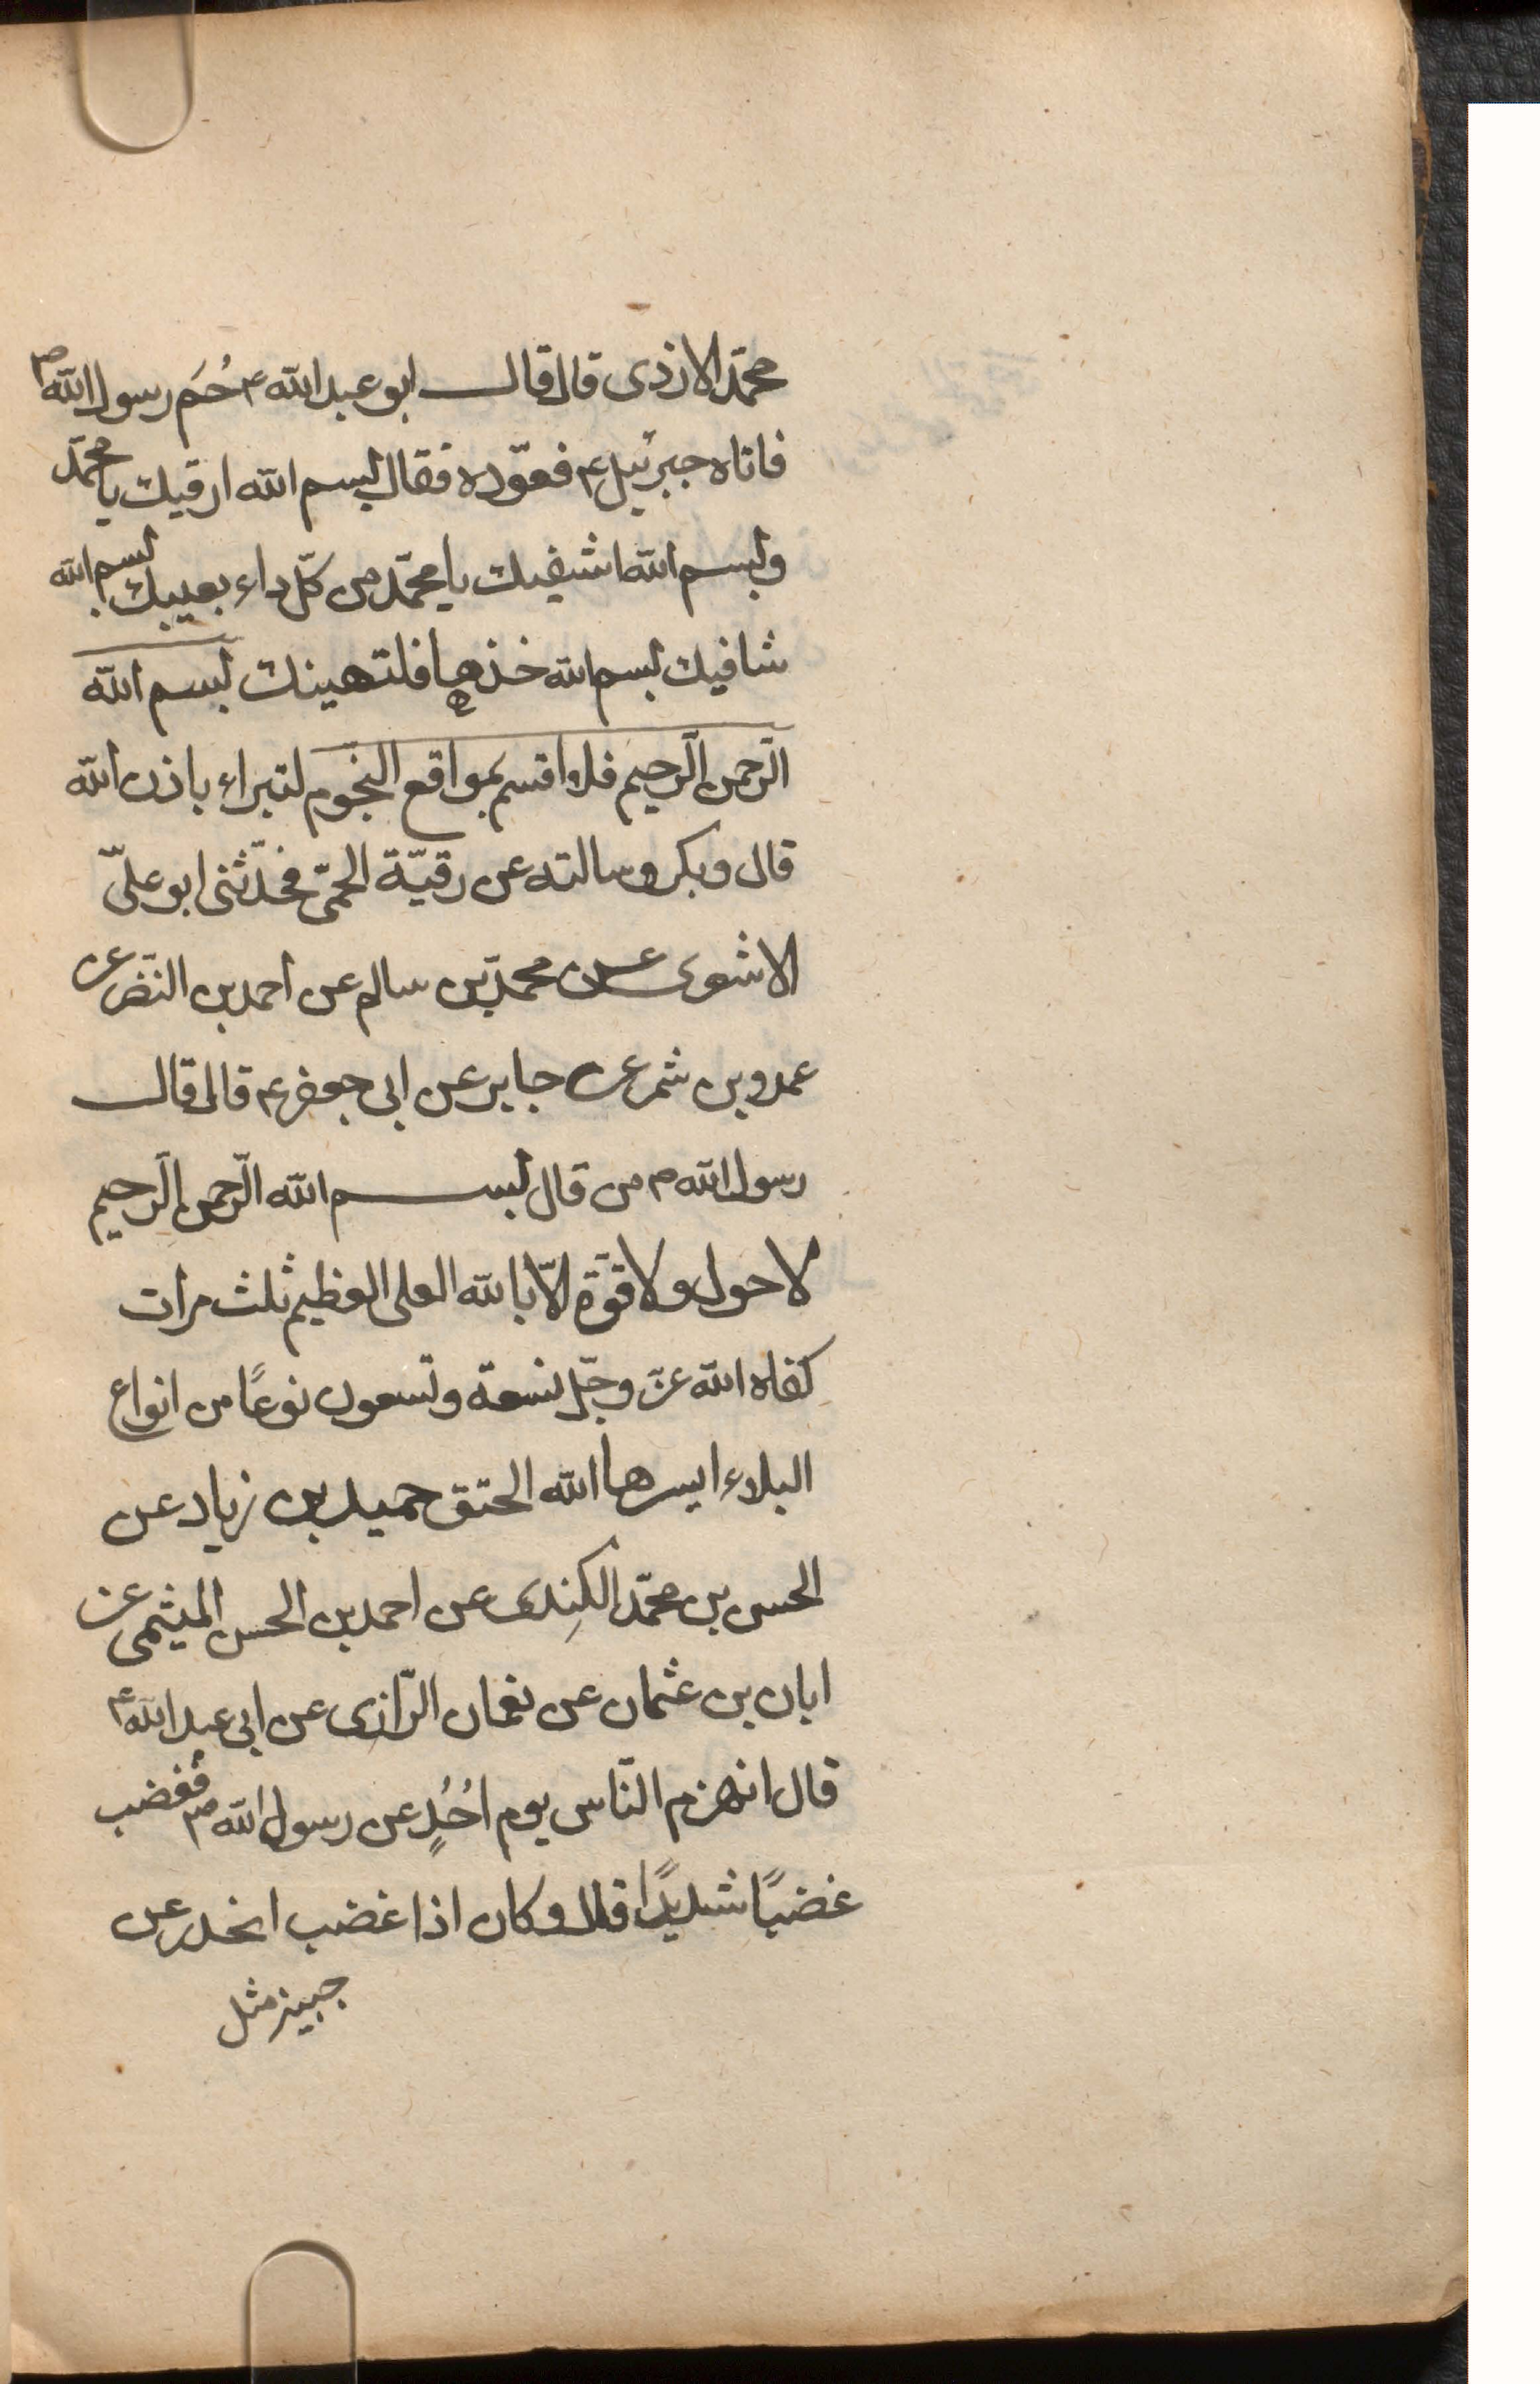 محمّد الازدى قال قال ابو عبد الله ع حُمَ رسول الله ص
فاتاه جبرئيل ع فعوّده فقال بسم الله ارقيك يا محمّد
وبسم الله اشفيك يا محمّد من كلّ داء يعيبك بسم الله
شافيك بسم الله خذها فلتهينك بسم الله
الرّحمن الرّحيم فلا اقسم بمواقع النجّوم لتبراء باذن الله
قال وبكر وسالته عن رقيّة الحمّى فحدّثنى ابو علىّ
الاشعرى عن محمّد بن سالم عن احمد بن النّضر عن
عمرو بن شمر عن جابر عن ابى جعفر ع قال قال
رسول الله ص من قال بسم الله الرّحمن الرّحيم
لا حول ولا قوّة الّا بالله العلى العظيم ثلث مرات
كفاه الله عزّ وجّل تسعة وتسعون نوعًا من انواع
البلاء ايسرها الله الحتق حميد بن زياد عن
الحسن بن محمّد الكِندى عن احمد بن الحسن الميثمى عن
ابان بن عثمان عن نعمان الرّازى عن ابى عبد الله ع
قال انهزم النّاس يوم اُحُدٍ عن رسول الله ص فغضب
غضبًا شديدًا قال وكان اذا غضب انحدر عن
جبينه مثل